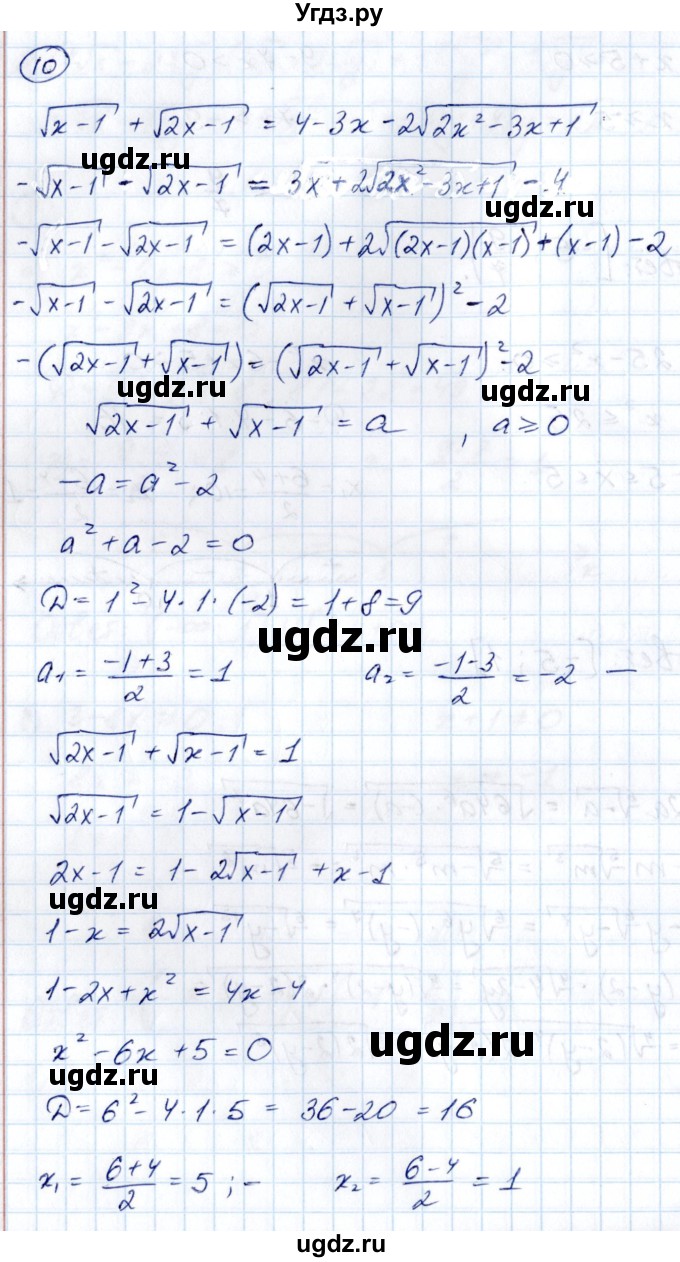 Угдз.ру
10
√(x-1) + √(2x-1) = 4-3x-2√(2x²-3x+1)
-√(x-1) - √(2x-1) = 3x+2√(2x²-3x+1) - 4
ugdz.ru ugdz.ru
-√(x-1) - √(2x-1) = (2x-1)+2√((2x-1)(x-1))+(x-1)-2
-√(x-1) - √(2x-1) = (√(2x-1) + √(x-1))² - 2
-(√(2x-1) + √(x-1)) = (√(2x-1) + √(x-1))² - 2
ugdz.ru ugdz.ru
√(2x-1) + √(x-1) = a , a ≥ 0
-a = a² - 2
a² + a - 2 = 0
Д = 1² - 4·1·(-2) = 1+8 = 9
ugdz.ru
a₁ = (-1+3)/2 = 1 a₂ = (-1-3)/2 = -2 —
√(2x-1) + √(x-1) = 1
√(2x-1) = 1 - √(x-1)
2x-1 = 1 - 2√(x-1) + x - 1
ugdz.ru
1-x = 2√(x-1)
1-2x+x² = 4x-4
ugdz.ru
x² - 6x + 5 = 0
ugdz.ru
Д = 6² - 4·1·5 = 36-20 = 16
x₁ = (6+4)/2 = 5 ; - x₂ = (6-4)/2 = 1
ugdz.ru